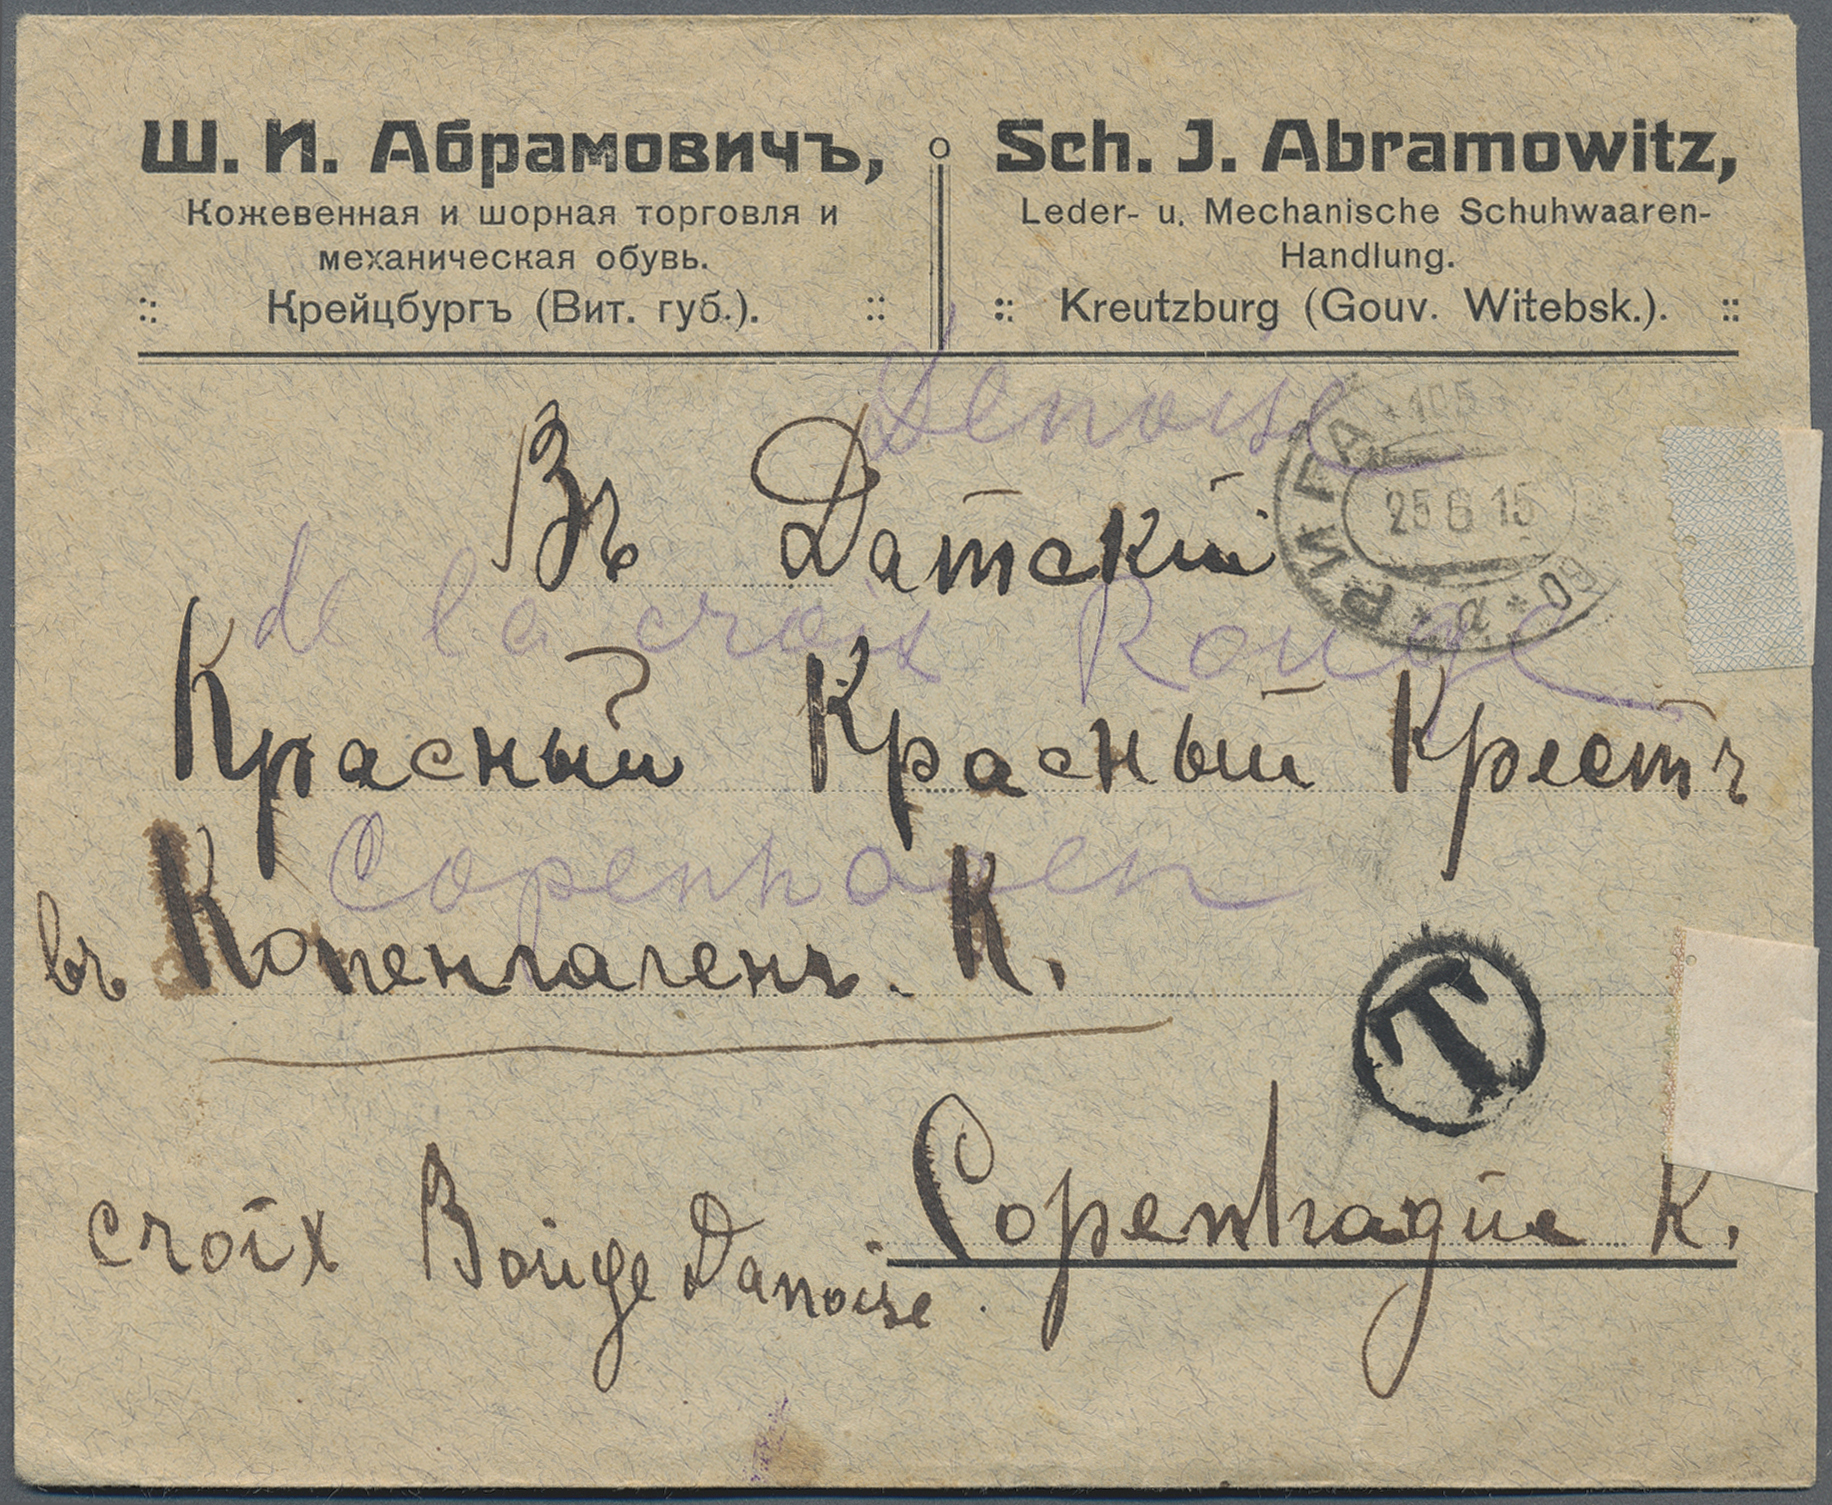 Ш. И. Абрамовичъ,
Кожевенная и шорная торговля и
механическая обувь.
Крейцбургъ (Вит. губ.).
Sch. J. Abramowitz,
Leder- u. Mechanische Schuhwaaren-
Handlung.
Kreutzburg (Gouv. Witebsk.).
Denoise
de la croix Rouge
Copenhagen
Въ Датскій
Красный Красный Крестъ
въ Копенгагенъ. К.
Copenhague K.
croix Rouge Danoise.
РИГА
25 6 15
T